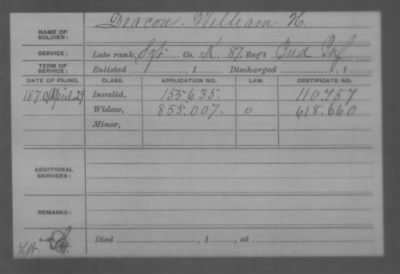 NAME OF SOLDIER: Deacon William H.
SERVICE: Late rank, Sgt Co. K, 87 Reg't Ind Inf
TERM OF SERVICE: Enlisted , 1 Discharged , 1
DATE OF FILING. CLASS. APPLICATION NO. LAW. CERTIFICATE NO.
1870 April 29 Invalid, 155.635 110.757
Widow, 855.007. 0 618.660
Minor,
ADDITIONAL SERVICES:
REMARKS:
Died , 1 , at